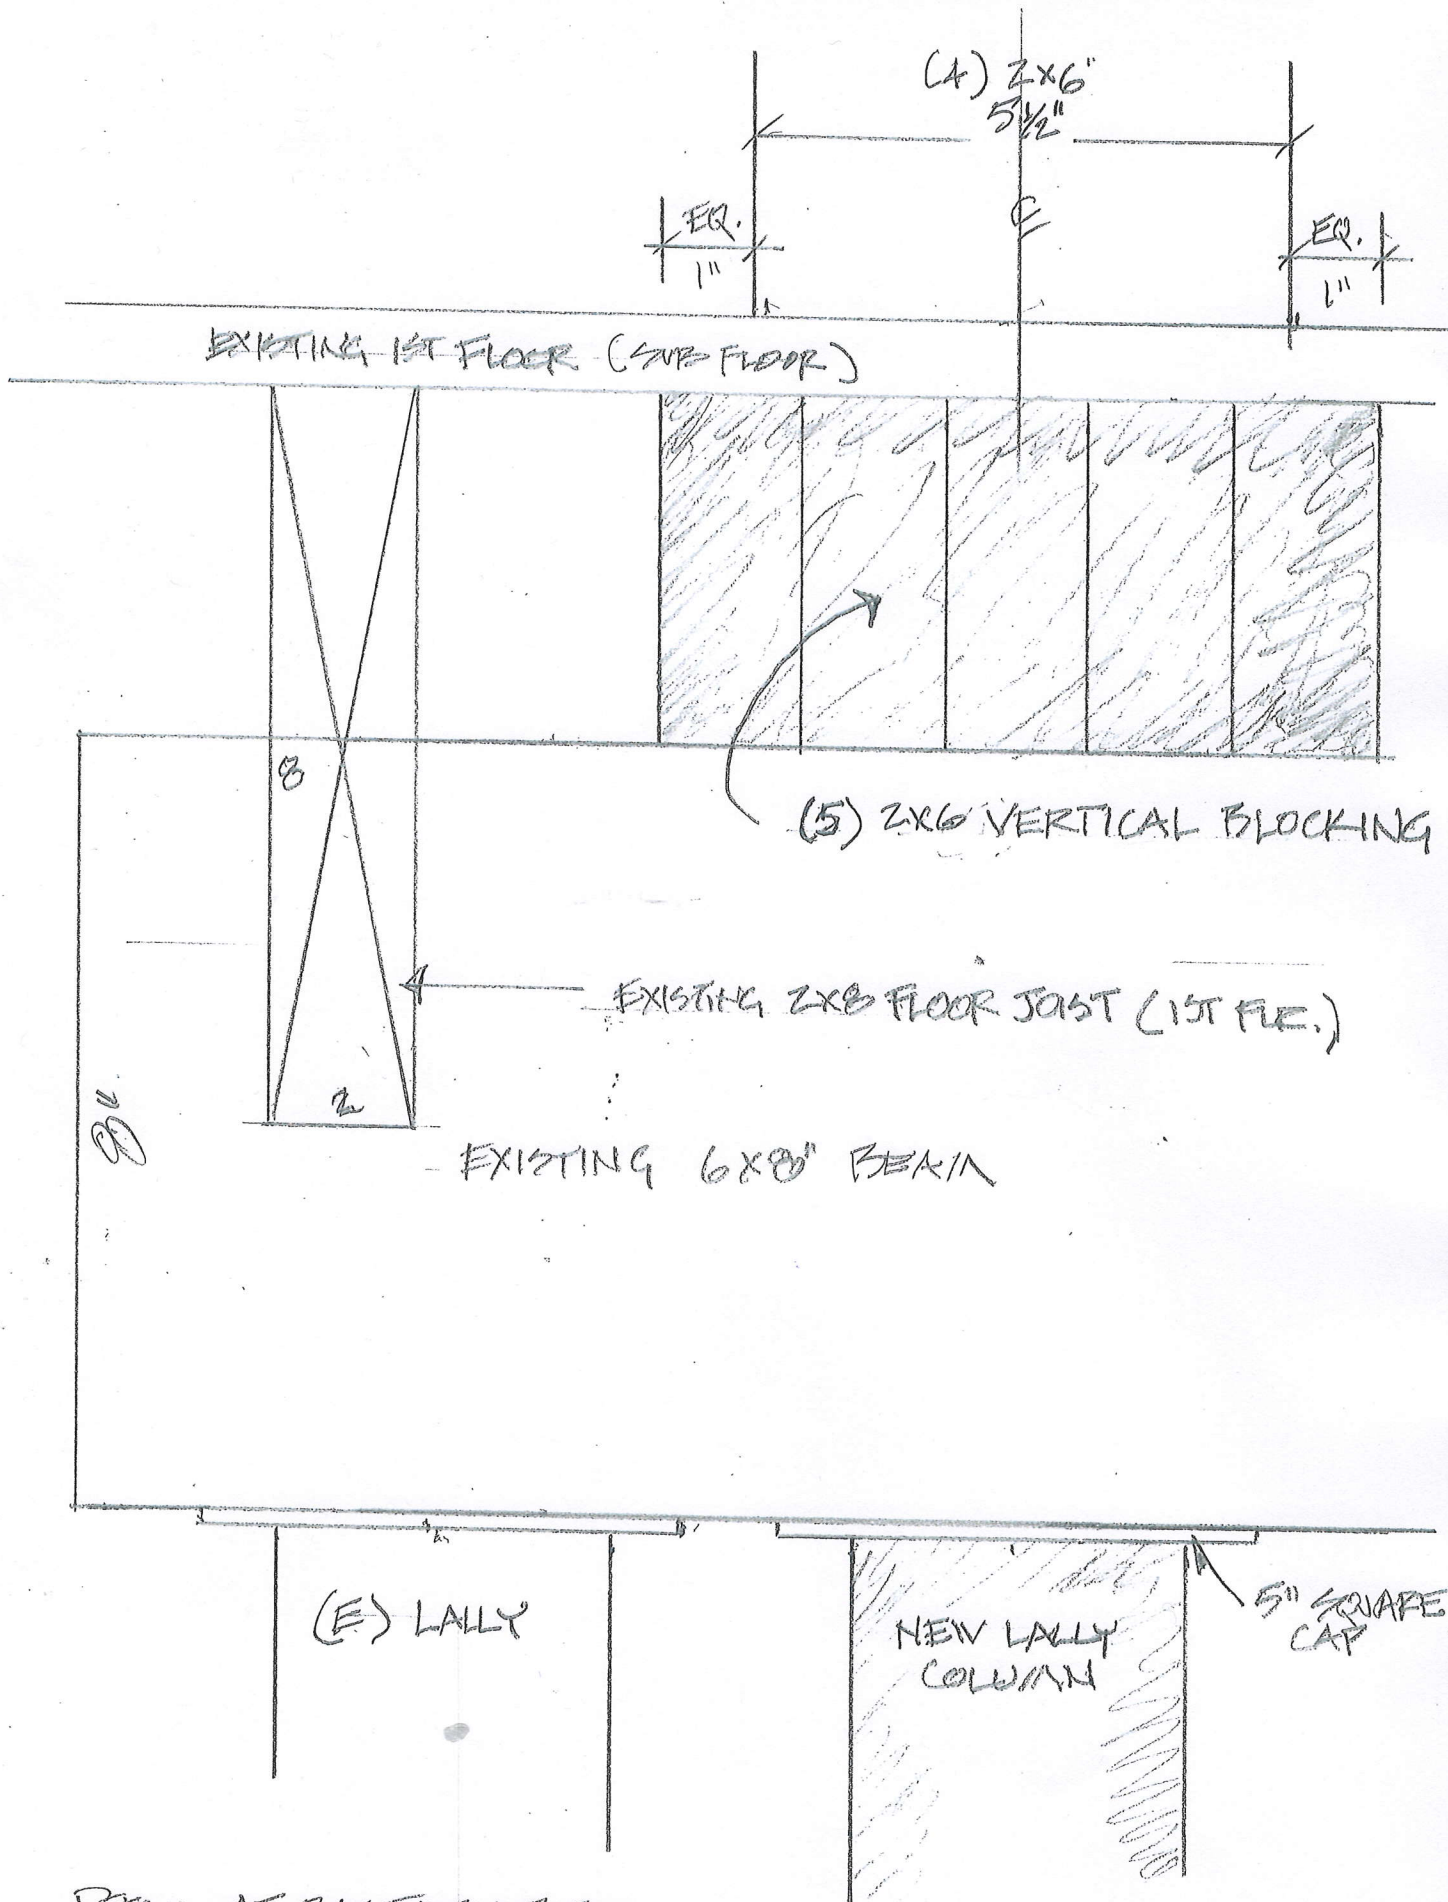 (4) 2x6"
5 1/2"
EQ.
1"
℄
EQ.
1"
EXISTING 1ST FLOOR (SUB FLOOR)
8
(5) 2X6 VERTICAL BLOCKING
EXISTING 2X8 FLOOR JOIST (1ST FLR.)
2
8"
EXISTING 6X8" BEAM
(E) LALLY
NEW LALLY
COLUMN
5" SQUARE
CAP